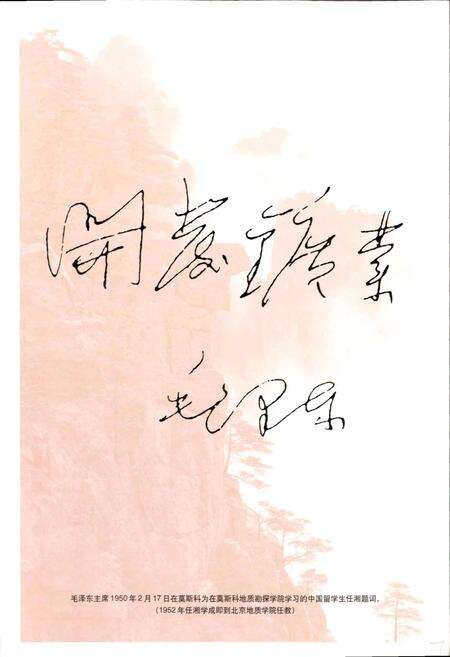 開發鑛業
毛泽东
毛泽东主席1950年2月17日在莫斯科为在莫斯科地质勘探学院学习的中国留学生任湘题词。
(1952年任湘学成即到北京地质学院任教)